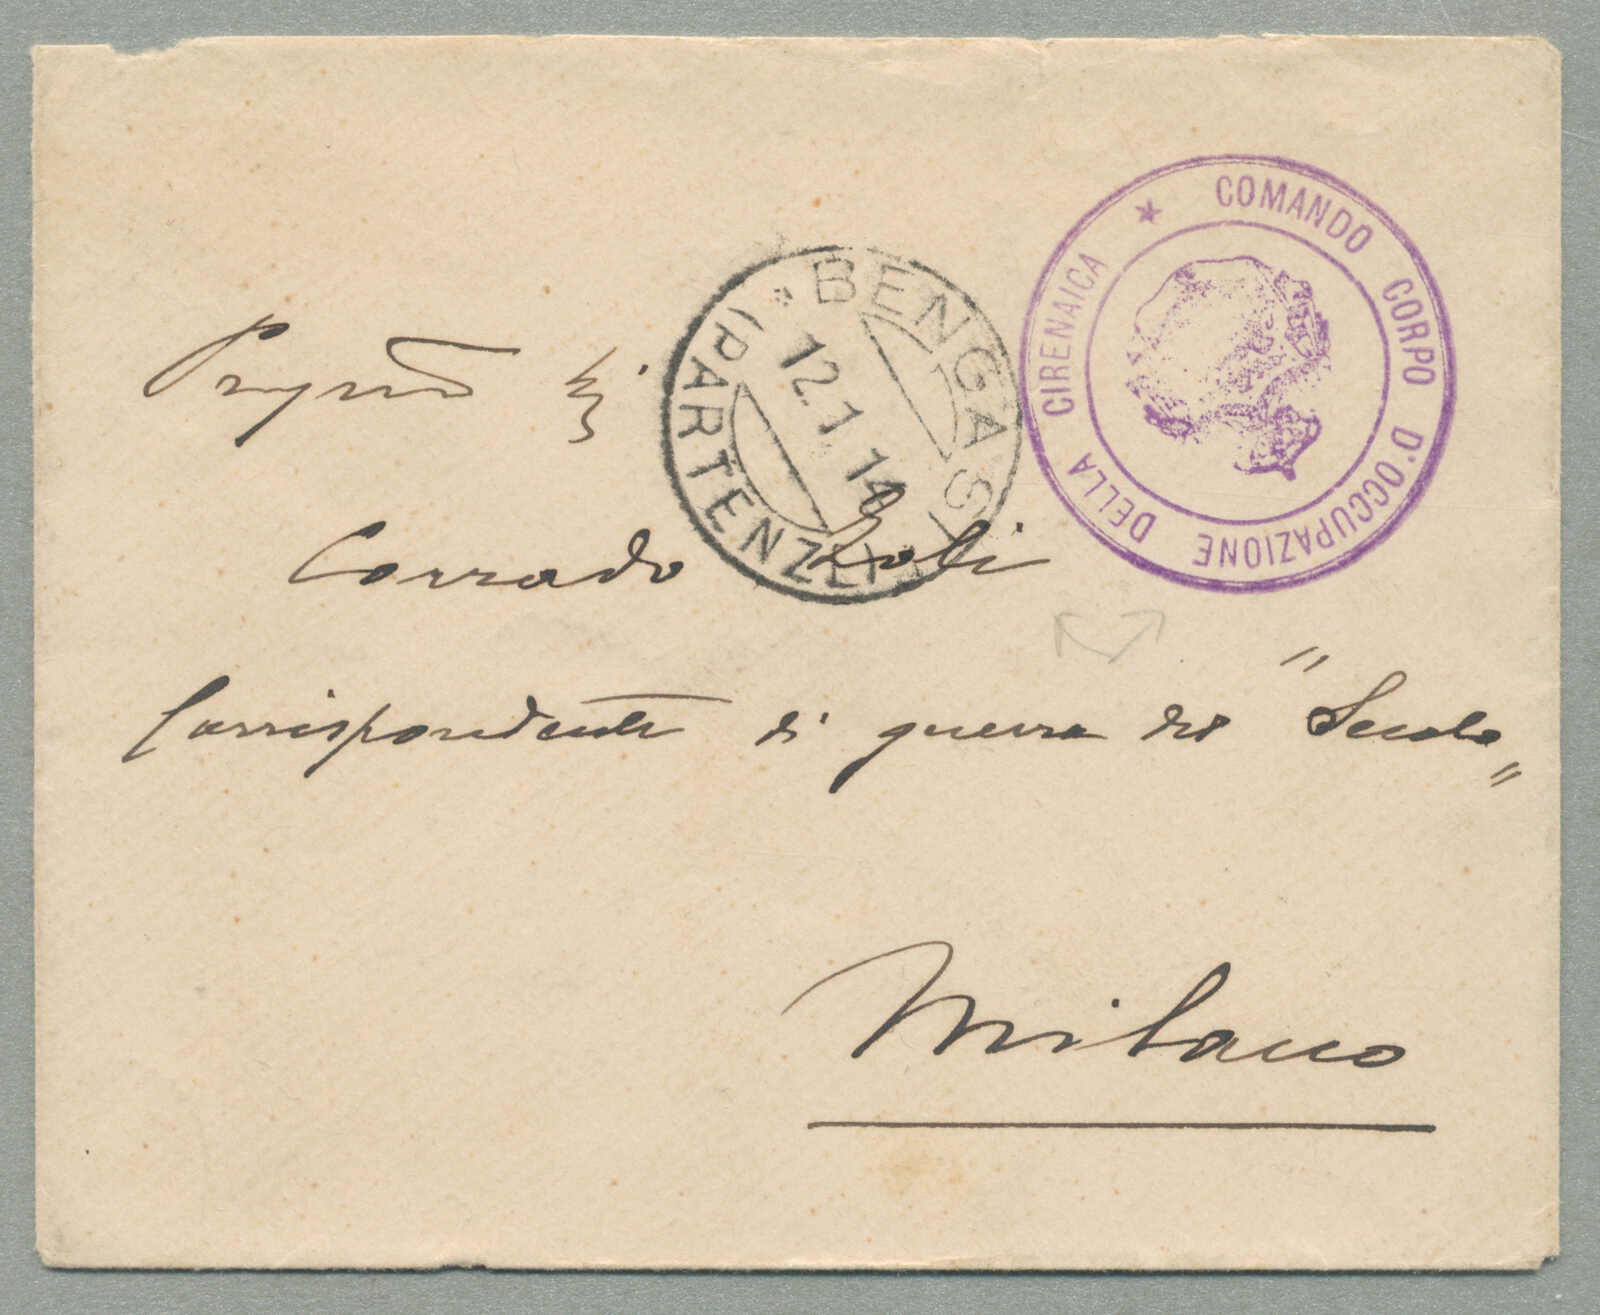 COMANDO CORPO D'OCCUPAZIONE DELLA CIRENAICA ★
BENGASI
12.1.14
(PARTENZE)
Corrado Zoli
Corrispondente di guerra del "Secolo"
Milano